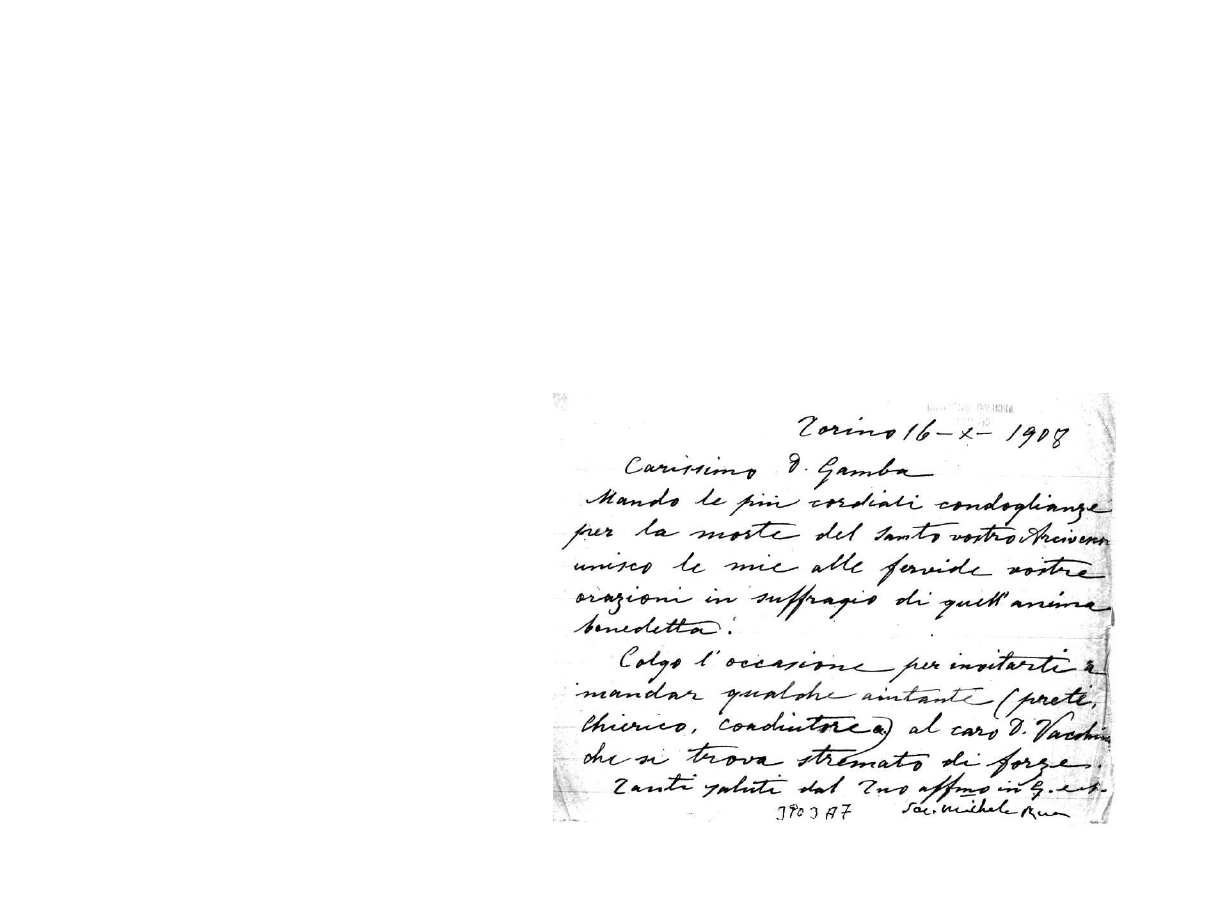 Torino 16-X-1908
Carissimo D. Gamba
Mando le più cordiali condoglianze
per la morte del santo vostro
unisco le mie alle fervide vostre
orazioni in suffragio di quell'anima
benedetta.
Colgo l'occasione per invitarti a
mandar qualche aiutante (prete,
chierico, coadiutore) al caro D.
che si trova stremato di forze.
Tanti saluti dal Tuo affmo in G. e M.
Sac. Michele Rua